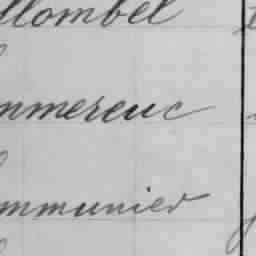 llombel
mmereuc
mmunier